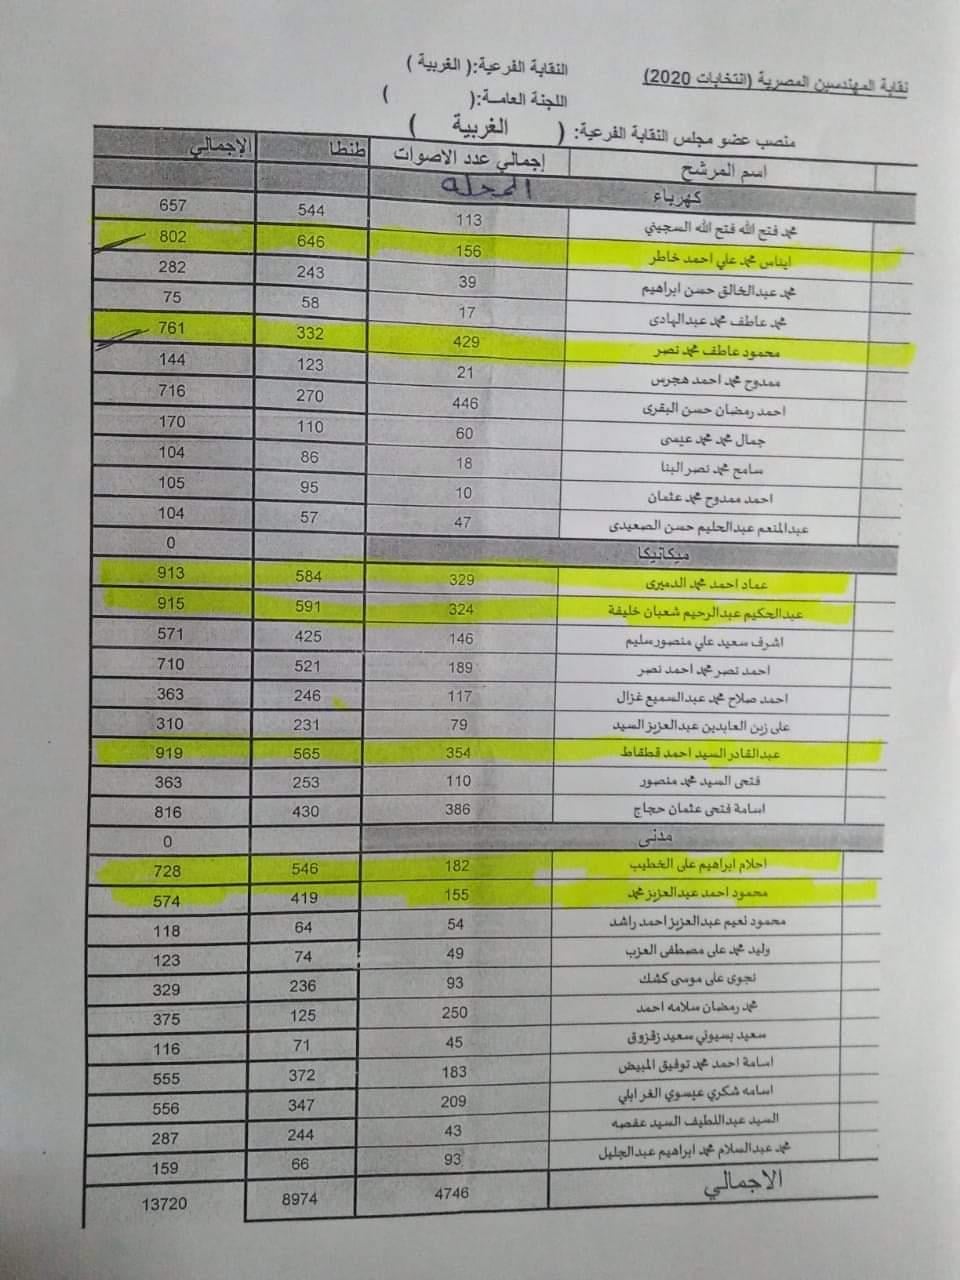 نقابة المهندسين المصرية (انتخابات 2020)
النقابة الفرعية:( الغربية )
اللجنة العامـة:( )
منصب عضو مجلس النقابة الفرعية: ( الغربية )
اسم المرشح إجمالي عدد الاصوات طنطا الإجمالي
كهرباء المحله
محمد فتح الله فتح الله السجيني 113 544 657
ايناس محمد علي احمد خاطر 156 646 802
محمد عبدالخالق حسن ابراهيم 39 243 282
محمد عاطف محمد عبدالهادى 17 58 75
محمود عاطف محمد نصر 429 332 761
ممدوح محمد احمد هجرس 21 123 144
احمد رمضان حسن البقرى 446 270 716
جمال محمد محمد عيسى 60 110 170
سامح محمد نصر البنا 18 86 104
احمد ممدوح محمد عثمان 10 95 105
عبدالمنعم عبدالحليم حسن الصعيدى 47 57 104
ميكانيكا 0
عماد احمد محمد الدميرى 329 584 913
عبدالحكيم عبدالرحيم شعبان خليفة 324 591 915
اشرف سعيد علي منصور سليم 146 425 571
احمد نصر محمد احمد نصر 189 521 710
احمد صلاح محمد عبدالسميع غزال 117 246 363
على زين العابدين عبدالعزيز السيد 79 231 310
عبدالقادر السيد احمد قطقاط 354 565 919
فتحى السيد محمد منصور 110 253 363
اسامة فتحى عثمان حجاج 386 430 816
مدنى 0
احلام ابراهيم على الخطيب 182 546 728
محمود احمد عبدالعزيز محمد 155 419 574
محمود نعيم عبدالعزيز احمد راشد 54 64 118
وليد محمد على مصطفى العزب 49 74 123
نجوى على موسى كشك 93 236 329
محمد رمضان سلامه احمد 250 125 375
سعيد بسيوني سعيد زقزوق 45 71 116
اسامة احمد محمد توفيق المبيض 183 372 555
اسامه شكري عيسوي الغرابلي 209 347 556
السيد عبداللطيف السيد عفصه 43 244 287
محمد عبدالسلام محمد ابراهيم عبدالجليل 93 66 159
الاجمالي 4746 8974 13720